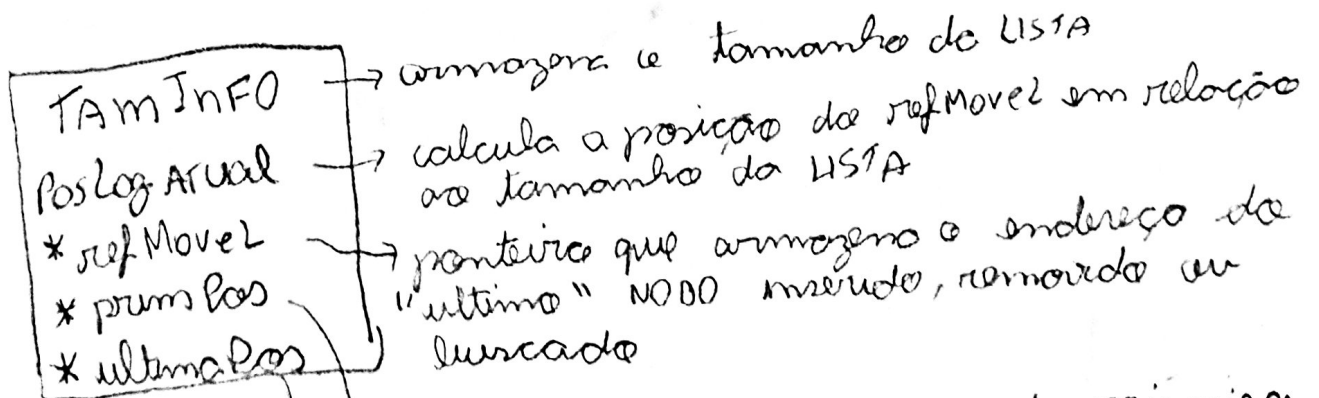 TAM INFO → armazena o tamanho da LISTA
PosLogAtual → calcula a posição do refMovel em relação
ao tamanho da LISTA
* refMovel → ponteiro que armazena o endereço do
"ultimo" NODO inserido, removido ou
buscado
* primPos
* ultimaPos